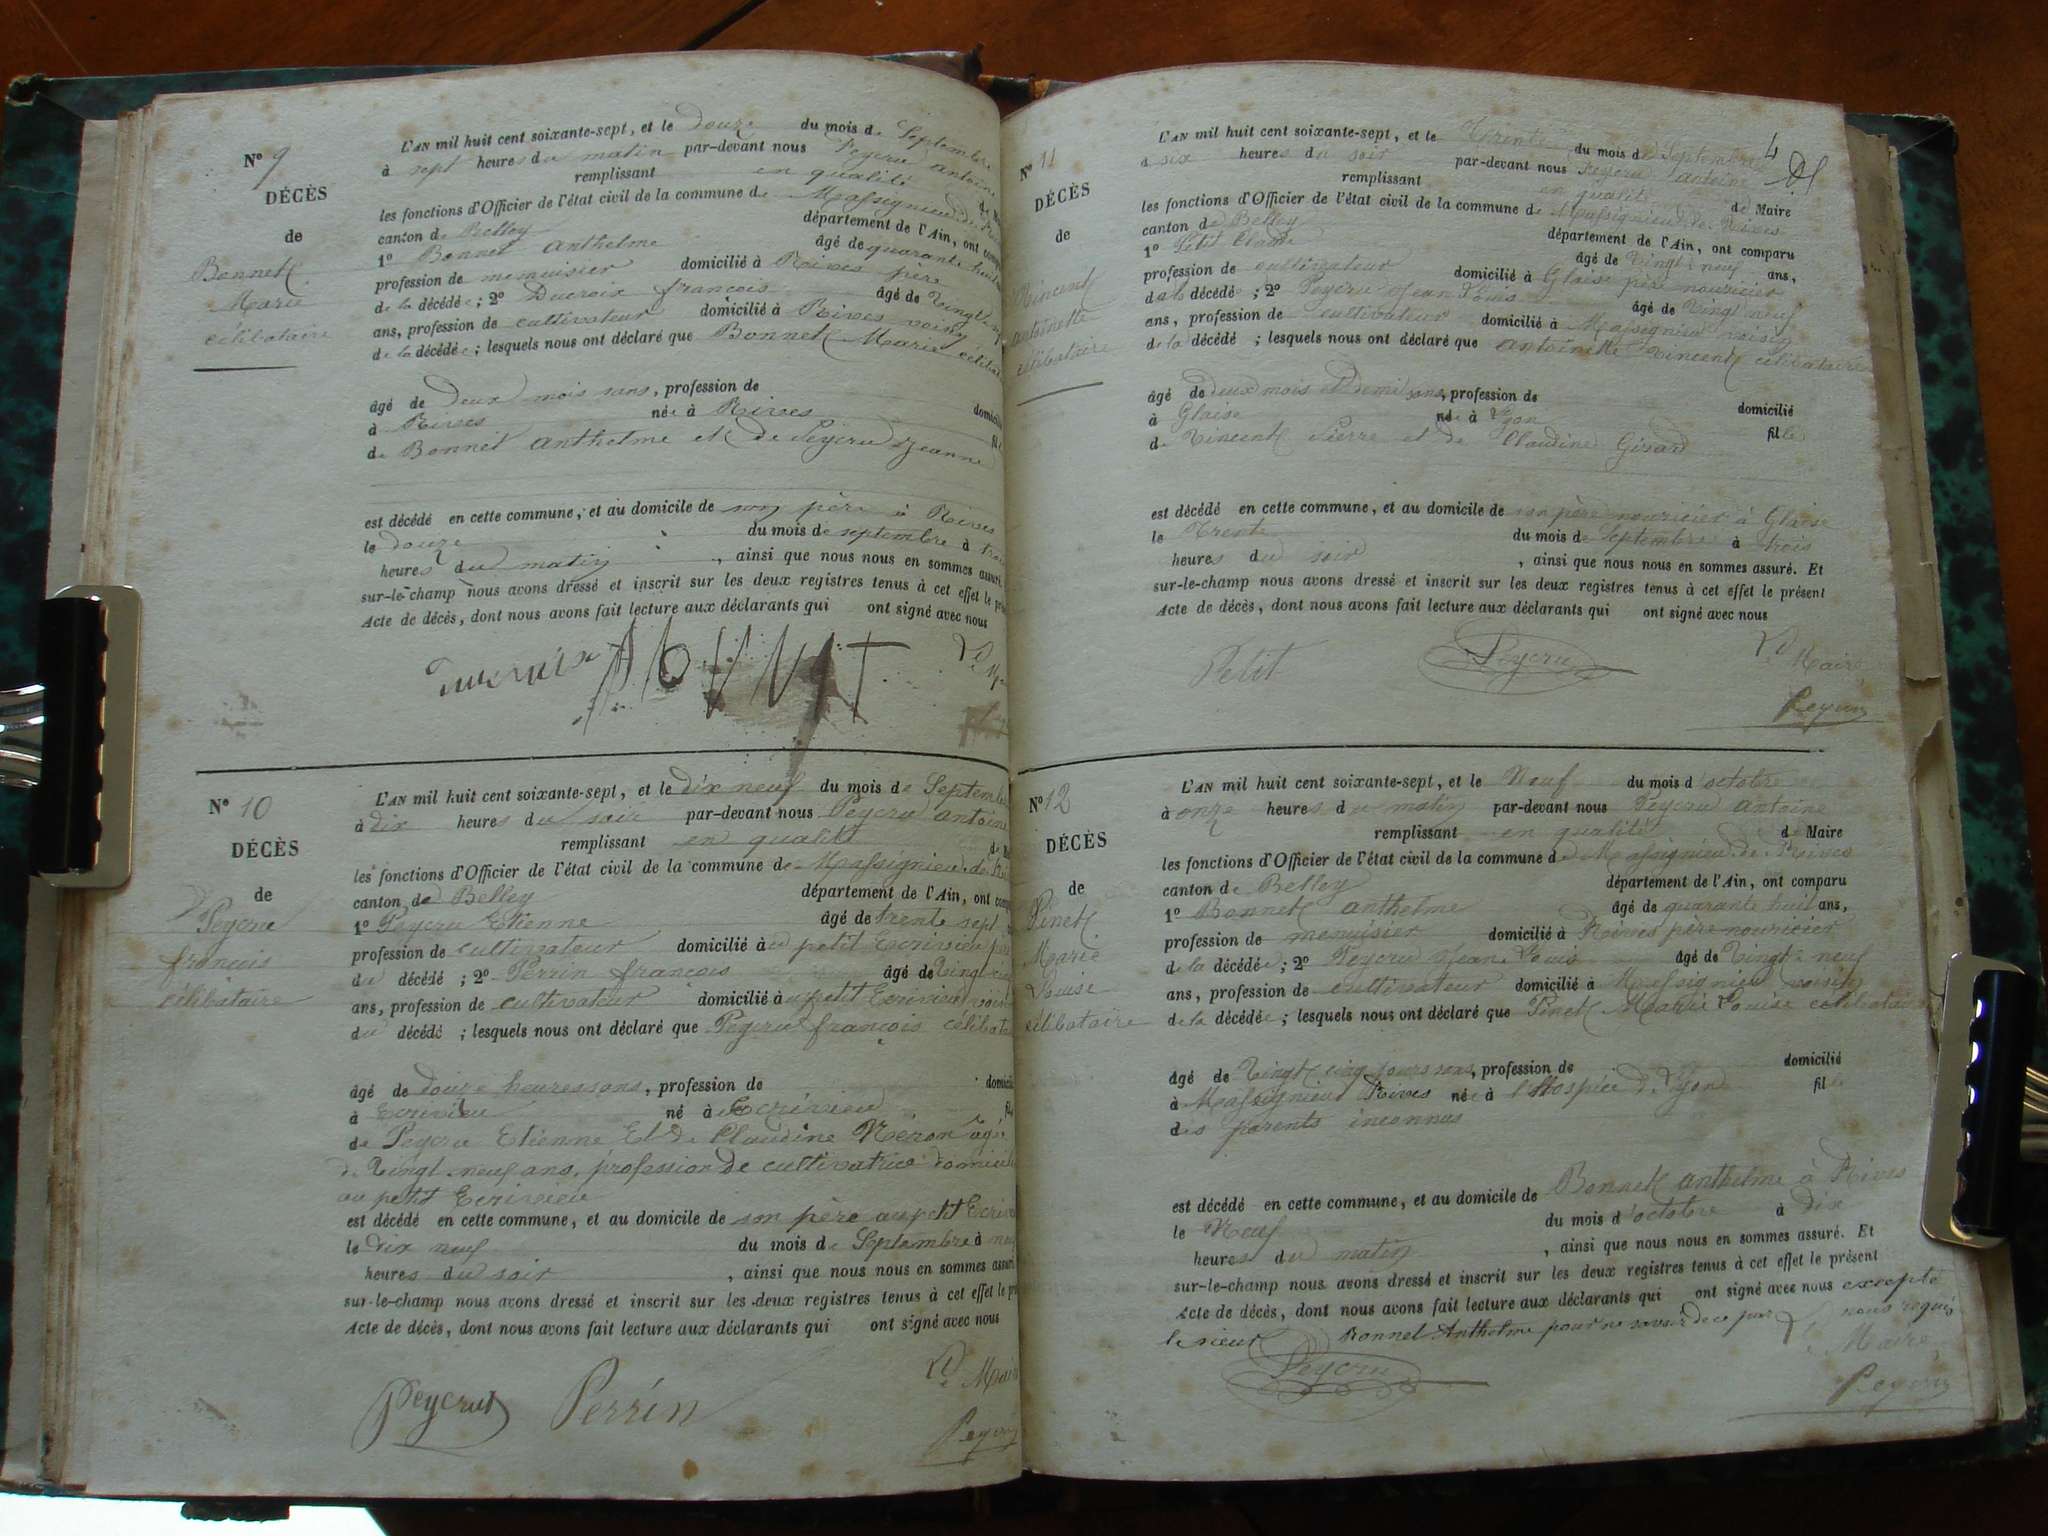 N° 9
DÉCÈS
de
Bonnet
Marie
célibataire
L'AN mil huit cent soixante-sept, et le douze du mois de Septembre
à sept heures du matin par-devant nous Peycru antoine
remplissant en qualité de
les fonctions d'Officier de l'état civil de la commune de Massignieu de
canton de Belley département de l'Ain, ont
1° Bonnet anthelme âgé de quarante huit
profession de menuisier domicilié à Rives père
de la décédée; 2° Ducroix françois âgé de
ans, profession de cultivateur domicilié à Rives voisin
de la décédée; lesquels nous ont déclaré que Bonnet Marie
âgé de deux mois sans, profession de
à Rives née à Rives
de Bonnet anthelme et de Peycru Jeanne
est décédé en cette commune, et au domicile de son père à Rives
le douze du mois de septembre à trois
heures du matin, ainsi que nous nous en sommes assuré.
sur-le-champ nous avons dressé et inscrit sur les deux registres tenus à cet effet le
Acte de décès, dont nous avons fait lecture aux déclarants qui ont signé avec nous
N° 10
DÉCÈS
de
Peycru
françois
célibataire
L'AN mil huit cent soixante-sept, et le dix neuf du mois de
à dix heures du soir par-devant nous Peycru antoine
remplissant en qualité
les fonctions d'Officier de l'état civil de la commune de Massignieu de
canton de Belley département de l'Ain, ont
1° Peycru Etienne âgé de trente sept
profession de cultivateur domicilié au petit Ecrivieu
du décédé; 2° Perrin françois âgé de
ans, profession de cultivateur domicilié au petit Ecrivieu
du décédé; lesquels nous ont déclaré que Peycru françois
âgé de douze heures sans, profession de
à Ecrivieu né à Ecrivieu
de Peycru Etienne Et de Claudine Néron âgée
de Vingt neuf ans, profession de cultivatrice
au petit Ecrivieu
est décédé en cette commune, et au domicile de son père au petit
le dix neuf du mois de Septembre à
heures du soir, ainsi que nous nous en sommes assuré
sur-le-champ nous avons dressé et inscrit sur les deux registres tenus à cet effet le
Acte de décès, dont nous avons fait lecture aux déclarants qui ont signé avec nous
Le
Peycrut Perrin
4
N° 11
DÉCÈS
de
Vincent
antoinette
célibataire
L'AN mil huit cent soixante-sept, et le Trente du mois de Septembre
à six heures du soir par-devant nous Peycru antoine
remplissant en qualité de Maire
les fonctions d'Officier de l'état civil de la commune de Massignieu de Rives
canton de Belley département de l'Ain, ont comparu
1° Petit Claude âgé de Vingt neuf ans,
profession de cultivateur domicilié à Glaise père nouricier
de la décédée; 2° Peycru Jean Louis âgé de Vingt neuf
ans, profession de cultivateur domicilié à Massignieu voisin
de la décédé; lesquels nous ont déclaré que antoinette Vincent célibataire
âgé de deux mois et Demi sans, profession de
domicilié
à Glaise née à Lyon fille
de Vincent Pierre et de Claudine Girard
est décédé en cette commune, et au domicile de son père nouricier à Glaise
le Trente du mois de Septembre à trois
heures du soir, ainsi que nous nous en sommes assuré. Et
sur-le-champ nous avons dressé et inscrit sur les deux registres tenus à cet effet le présent
Acte de décès, dont nous avons fait lecture aux déclarants qui ont signé avec nous
Petit Peycru Le Maire
Peycru
N° 12
DÉCÈS
de
Pinet
Marie
Louise
célibataire
L'AN mil huit cent soixante-sept, et le Neuf du mois d'octobre
à onze heures du matin par-devant nous Peycru antoine
remplissant en qualité de Maire
les fonctions d'Officier de l'état civil de la commune de Massignieu de Rives
canton de Belley département de l'Ain, ont comparu
1° Bonnet anthelme âgé de quarante huit ans,
profession de menuisier domicilié à Rives père nouricier
de la décédée; 2° Peycru Jean Louis âgé de Vingt neuf
ans, profession de cultivateur domicilié à Massignieu voisin
de la décédée; lesquels nous ont déclaré que Pinet Marie Louise célibataire
âgé de Vingt cinq jours sans, profession de domicilié
à Massignieu Rives née à l'Hospice de Lyon fille
des parents inconnus
est décédé en cette commune, et au domicile de Bonnet anthelme à Rives
le Neuf du mois d'octobre à dix
heures du matin, ainsi que nous nous en sommes assuré. Et
sur-le-champ nous avons dressé et inscrit sur les deux registres tenus à cet effet le présent
Acte de décès, dont nous avons fait lecture aux déclarants qui ont signé avec nous excepté
le sieur Bonnet Anthelme pour ne savoir de ce par nous requis
Peycru Le Maire,
Peycru